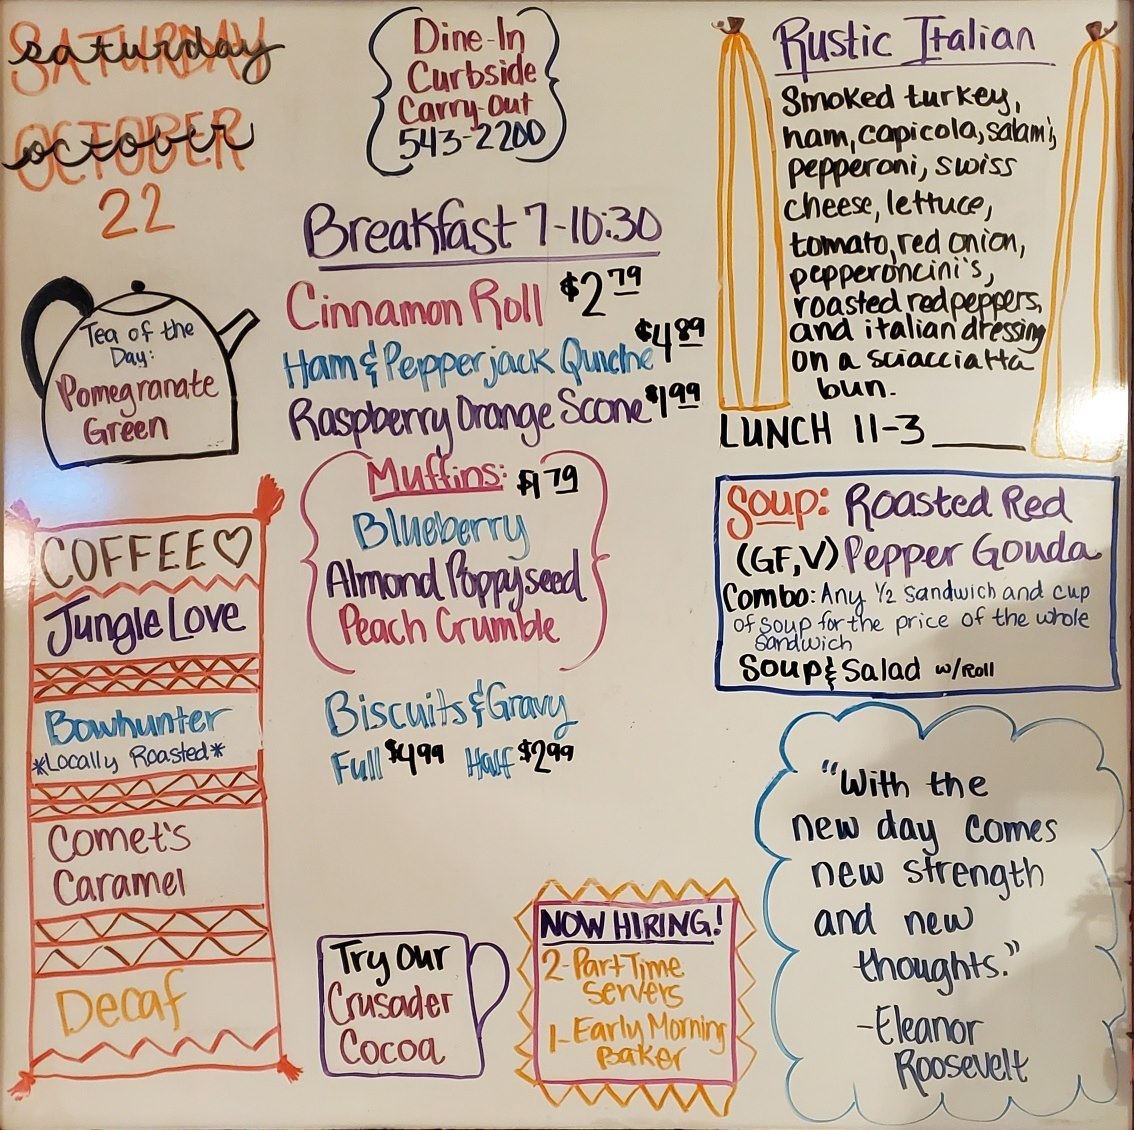 SATURDAY
saturday
OCTOBER
october
22
Dine-In
Curbside
Carry-out
543-2200
Breakfast 7-10:30
Cinnamon Roll $2.79
Ham & Pepperjack Quiche $4.89
Raspberry Orange Scone $1.99
Muffins: $1.79
Blueberry
Almond Poppyseed
Peach Crumble
Biscuits & Gravy
Full $4.99 Half $2.99
Tea of the
Day:
Pomegranate
Green
COFFEE♡
Jungle Love
Bowhunter
*Locally Roasted*
Comet's
Caramel
Decaf
Try Our
Crusader
Cocoa
NOW HIRING!
2-Part Time
Servers
1-Early Morning
Baker
Rustic Italian
Smoked turkey,
ham, capicola, salami,
pepperoni, swiss
cheese, lettuce,
tomato, red onion,
pepperoncini's,
roasted red peppers,
and italian dressing
on a sciacciatta
bun.
LUNCH 11-3
Soup: Roasted Red
(GF,V) Pepper Gouda
Combo: Any ½ sandwich and cup
of soup for the price of the whole
sandwich
Soup & Salad w/Roll
"With the
new day comes
new strength
and new
thoughts."
-Eleanor
Roosevelt